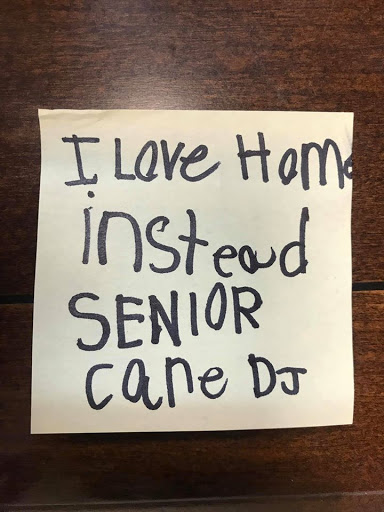 I Love Home
instead
SENIOR
care DJ